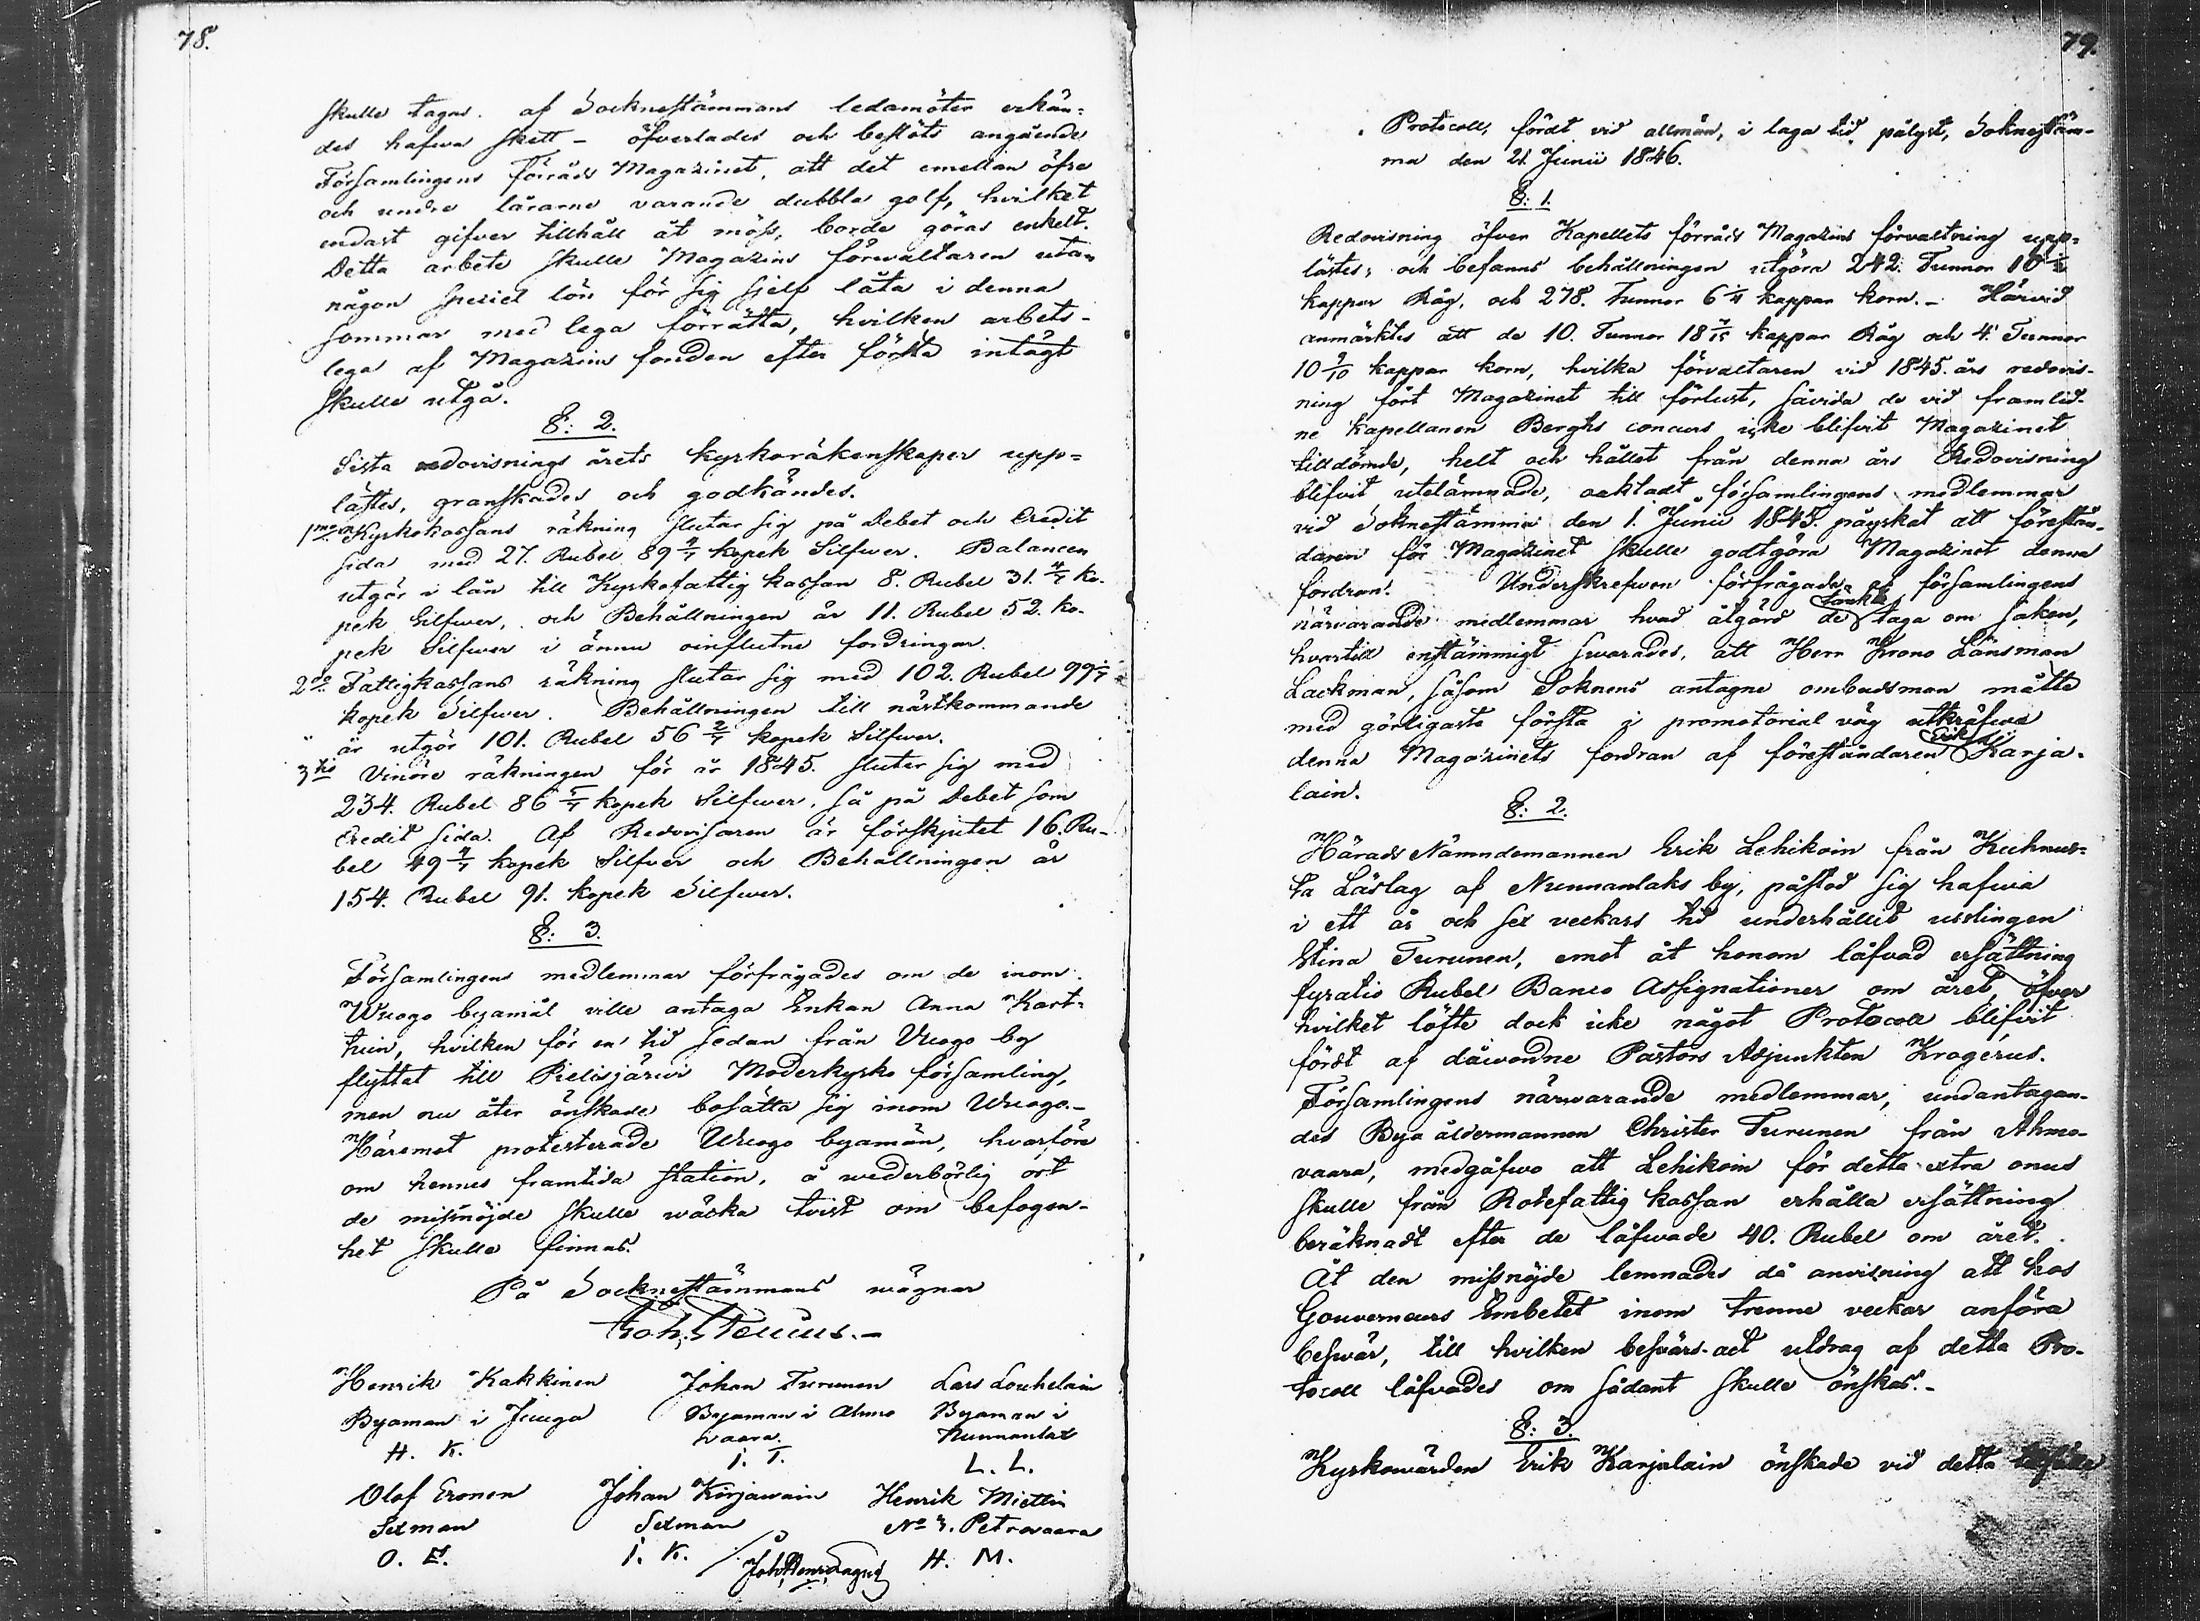 78.
skulle tagas. af Socknestämmans ledamöter erkän=
des hafwa skett - öfverlades och beslöts angående
Församlingens Förråds Magazinet, att det emellan öfre
och undre lårarne varande dubbla golf, hvilket
endast gifver tillhåll åt möss, borde göras enkelt.
Detta arbete skulle Magazins förwaltaren utan
någon speciel lön för sig sjelf låta i denna
sommar med lega förrätta, hvilken arbets-
lega af Magazins fonden efter första intägt
skulle utgå.
§: 2.
Sista redovisnings årets kyrkoräkenskaper upp=
lästes, granskades och godkändes.
1mo Kyrkokassans räkning slutar sig på Debet och Credit
sida med 27. Rubel 89 2/7 kopek Silfwer. Balancen
utgör i lån till Kyrkofattig kassan 8. Rubel 31. 4/7 ko-
pek Silfwer, och Behållningen är 11. Rubel 52. ko-
pek Silfwer i ännu oinflutne fordringar.
2do Fattigkassans räkning slutar sig med 102. Rubel 99 1/7
kopek Silfwer. Behållningen till nästkommande
år utgör 101. Rubel 56 2/7 kopek Silfwer.
3tio Vinöre räkningen för år 1845. slutar sig med
234. Rubel 86 5/7 kopek Silfwer, så på Debet som
Credit sida. Af Redovisaren är förskjutet 16. Ru-
bel 49 2/7 kopek Silfver och Behållningen är
154. Rubel 91. kopek Silfwer.
§: 3.
Församlingens medlemmar förfrågades om de inom
Wuogo byamål ville antaga Enkan Anna Kart-
tuin, hvilken för en tid sedan från Vuogo by
flyttat till Pielisjärwi Moderkyrko församling,
men nu åter önskade bosätta sig inom Wuogo.-
Häremot protesterade Wuogo byamän, hvarföre
om hennes framtida station, å wederbörlig ort
de missnöjde skulle wäcka tvist om befogen-
het skulle finnas.
På Socknestämmans wägnar
Joh. Stenius.-
Henrik Kakkinen Johan Turunen Lars Louhelain
Byaman i Juuga Byaman i Ahmo Byaman i
waara. Nunnanlax
H. K. I. T. L. L.
Olof Eronen Johan Korjawain Henrik Miettin
Sexman Sexman No 3. Petrovaara
O. E. I. K. H. M.
Joh. Henr.
79.
Protocoll, fördt vid allmän, i laga tid pålyst, Soknestäm-
ma den 21 Junii 1846.
§: 1.
Redovisning öfver Kapellets förråds Magazins förvaltning upp=
lästes; och befanns behållningen utgöra 242. Tunnor 10
kappar Råg, och 278. Tunnor 6 1/4 kappar korn.- Härvid
anmärktes att de 10. Tunnor 18 7/15 kappar Råg och 4. Tunnor
10 9/10 kappar korn, hvilka förvaltaren vid 1845. års redovis-
ning fört Magazinet till förlust, såvida de vid framlid-
ne Kapellanen Berghs concurs icke blifvit Magazinet
tilldömde, helt och hållet från denna års Redovisning
blifvit utelämnade, oaktadt församlingens medlemmar
vid Soknestämma den 1. Junii 1845. påyrkat att förestån-
daren för Magazinet skulle godtgöra Magazinet denna
fordran. Underskrefwen förfrågade af församlingens
närvarande medlemmar hvad åtgärd de tänkte taga om saken,
hvartill enstämmigt swarades, att Herr Krono Länsman
Lackman, såsom Soknens antagne ombudsman måtte
med görligaste första i promotorial väg utkräfwa
denna Magazinets fordran af föreståndaren Erik Karja-
lain.
§: 2.
Härads Nämndemannen Erik Lehikoin från Kuhnus-
ta Läslag af Nunnanlaks by, påstod sig hafwa
i ett år och sex veckars tid underhållit usslingen
Stina Turunen, emot åt honom låfvad ersättning
fyratio Rubel Banco Assignationer om året, öfver
hvilket löfte dock icke något Protocoll blifvit
fördt af dåwordne Pastors Adjunkten Krogerus.
Församlingens närwarande medlemmar, undantagan-
des Bya åldermannen Christer Turunen från Ahmo-
vaara, medgåfwo att Lehikoin för detta extra onus
skulle från Rotefattig kassan erhålla ersättning
beräknadt efter de låfwade 40. Rubel om året.
Åt den missnöjde lemnades då anvisning att hos
Gouverneurs Embetet inom trenne veckor anföra
beswär, till hvilken besvärs-act utdrag af detta Pro-
tocoll låfvades om sådant skulle önskas.-
§: 3.
Kyrkowärden Erik Karjalain önskade vid detta